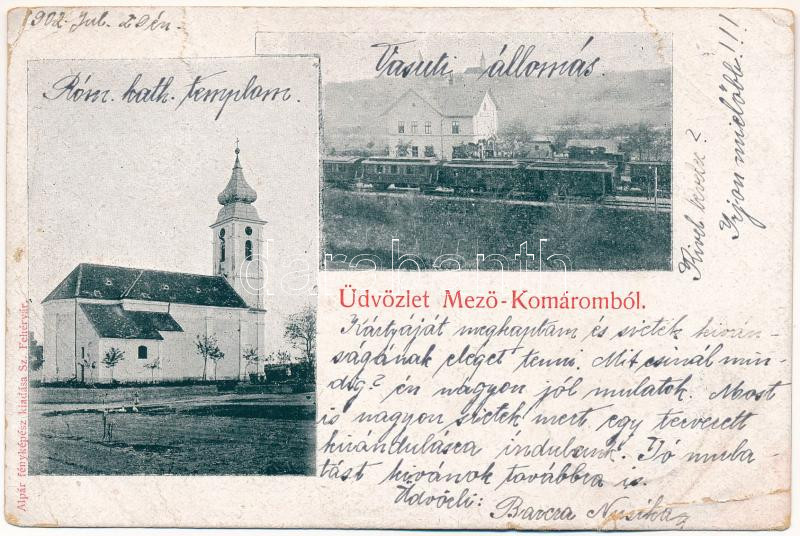 1902. Jul. 29én.
Róm. kath. templom.
Vasuti állomás.
Kivel beszéx?
Irjon mielőbb!!!
darabanth
Üdvözlet Mező-Komáromból.
Kártyáját meghaptam és sietek kiván-
ságának eleget tenni. Mit csinál min-
dég? én nagyon jól mulatok. Most
is nagyon sietek mert egy tervezett
kirándulásra indulunk. Jó mula-
tást kivánok továbbra is.
Üdvözli: Barcza Nusika
Alpár fényképész kiadása Sz. Fehérvár.